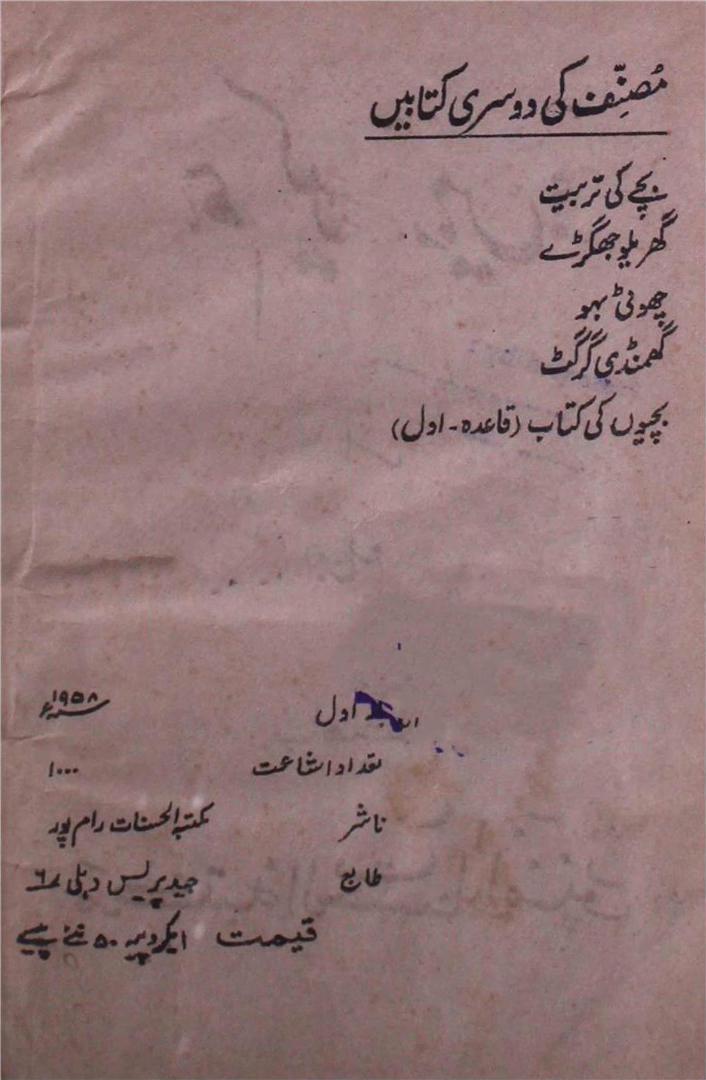 مُصنِّف کی دوسری کتابیں
بچے کی تربیت
گھریلو جھگڑے
چھوٹی بہو
گھمنڈی گرگٹ
بچیوں کی کتاب (قاعدہ - اول)
اول ۱۹۵۸ء
تعداد اشاعت ۱۰۰۰
ناشر مکتبہ الحسنات رام پور
طابع جید پریس دہلی ۶
قیمت ایکروپیہ ۵۰ نئے پیسے